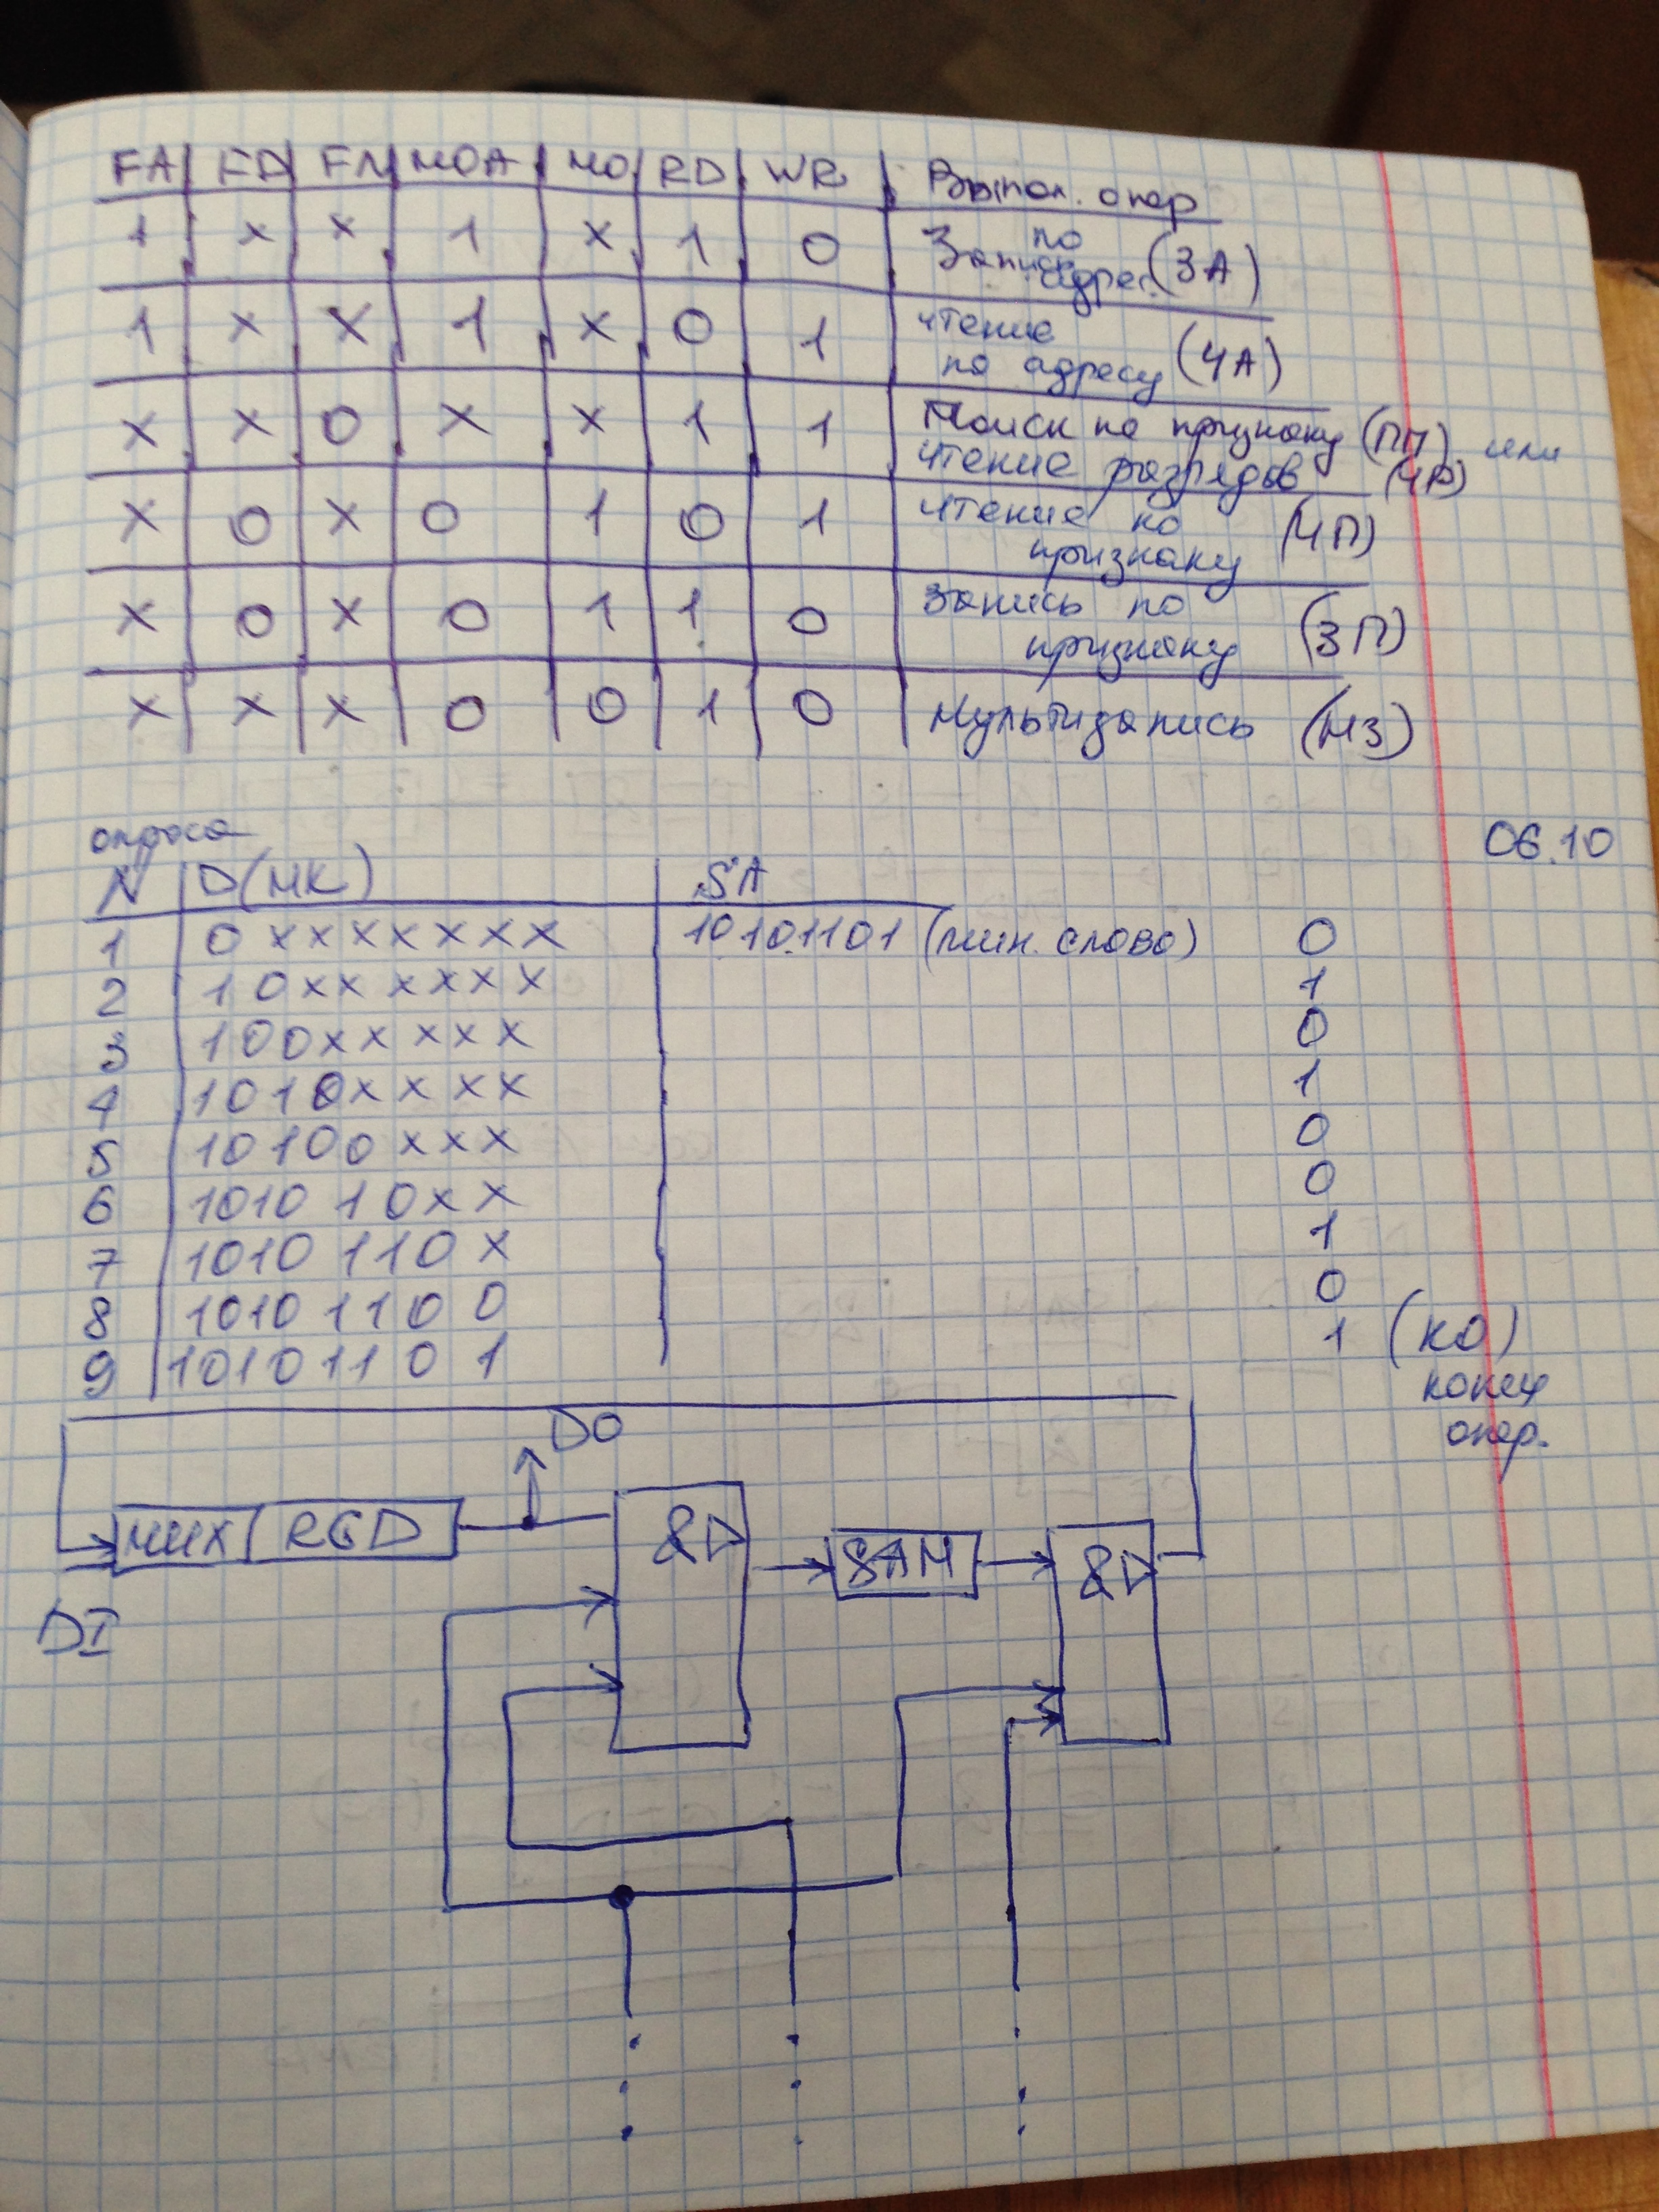 FA FD FN MOA MO RD WR Выпол. опер
1 x x 1 x 1 0 Запись по адрес. (ЗА)
1 x x 1 x 0 1 чтение по адресу (ЧА)
x x 0 x x 1 1 Поиск по признаку (ПП) или
чтение разрядов (ЧР)
x 0 x 0 1 0 1 чтение по признаку (ЧП)
x 0 x 0 1 1 0 запись по признаку (ЗП)
x x x 0 0 1 0 Мультизапись (МЗ)
06.10
опроса
N D(МК) SA
1 0xxxxxxx 10101101 (мин. слово) 0
2 10xxxxxx 1
3 100xxxxx 0
4 1010xxxx 1
5 10100xxx 0
6 101010xx 0
7 1010110x 1
8 10101100 0
9 10101101 1 (КО)
конец
опер.
DO
MUX RGD &▷ SAM &▷
DI